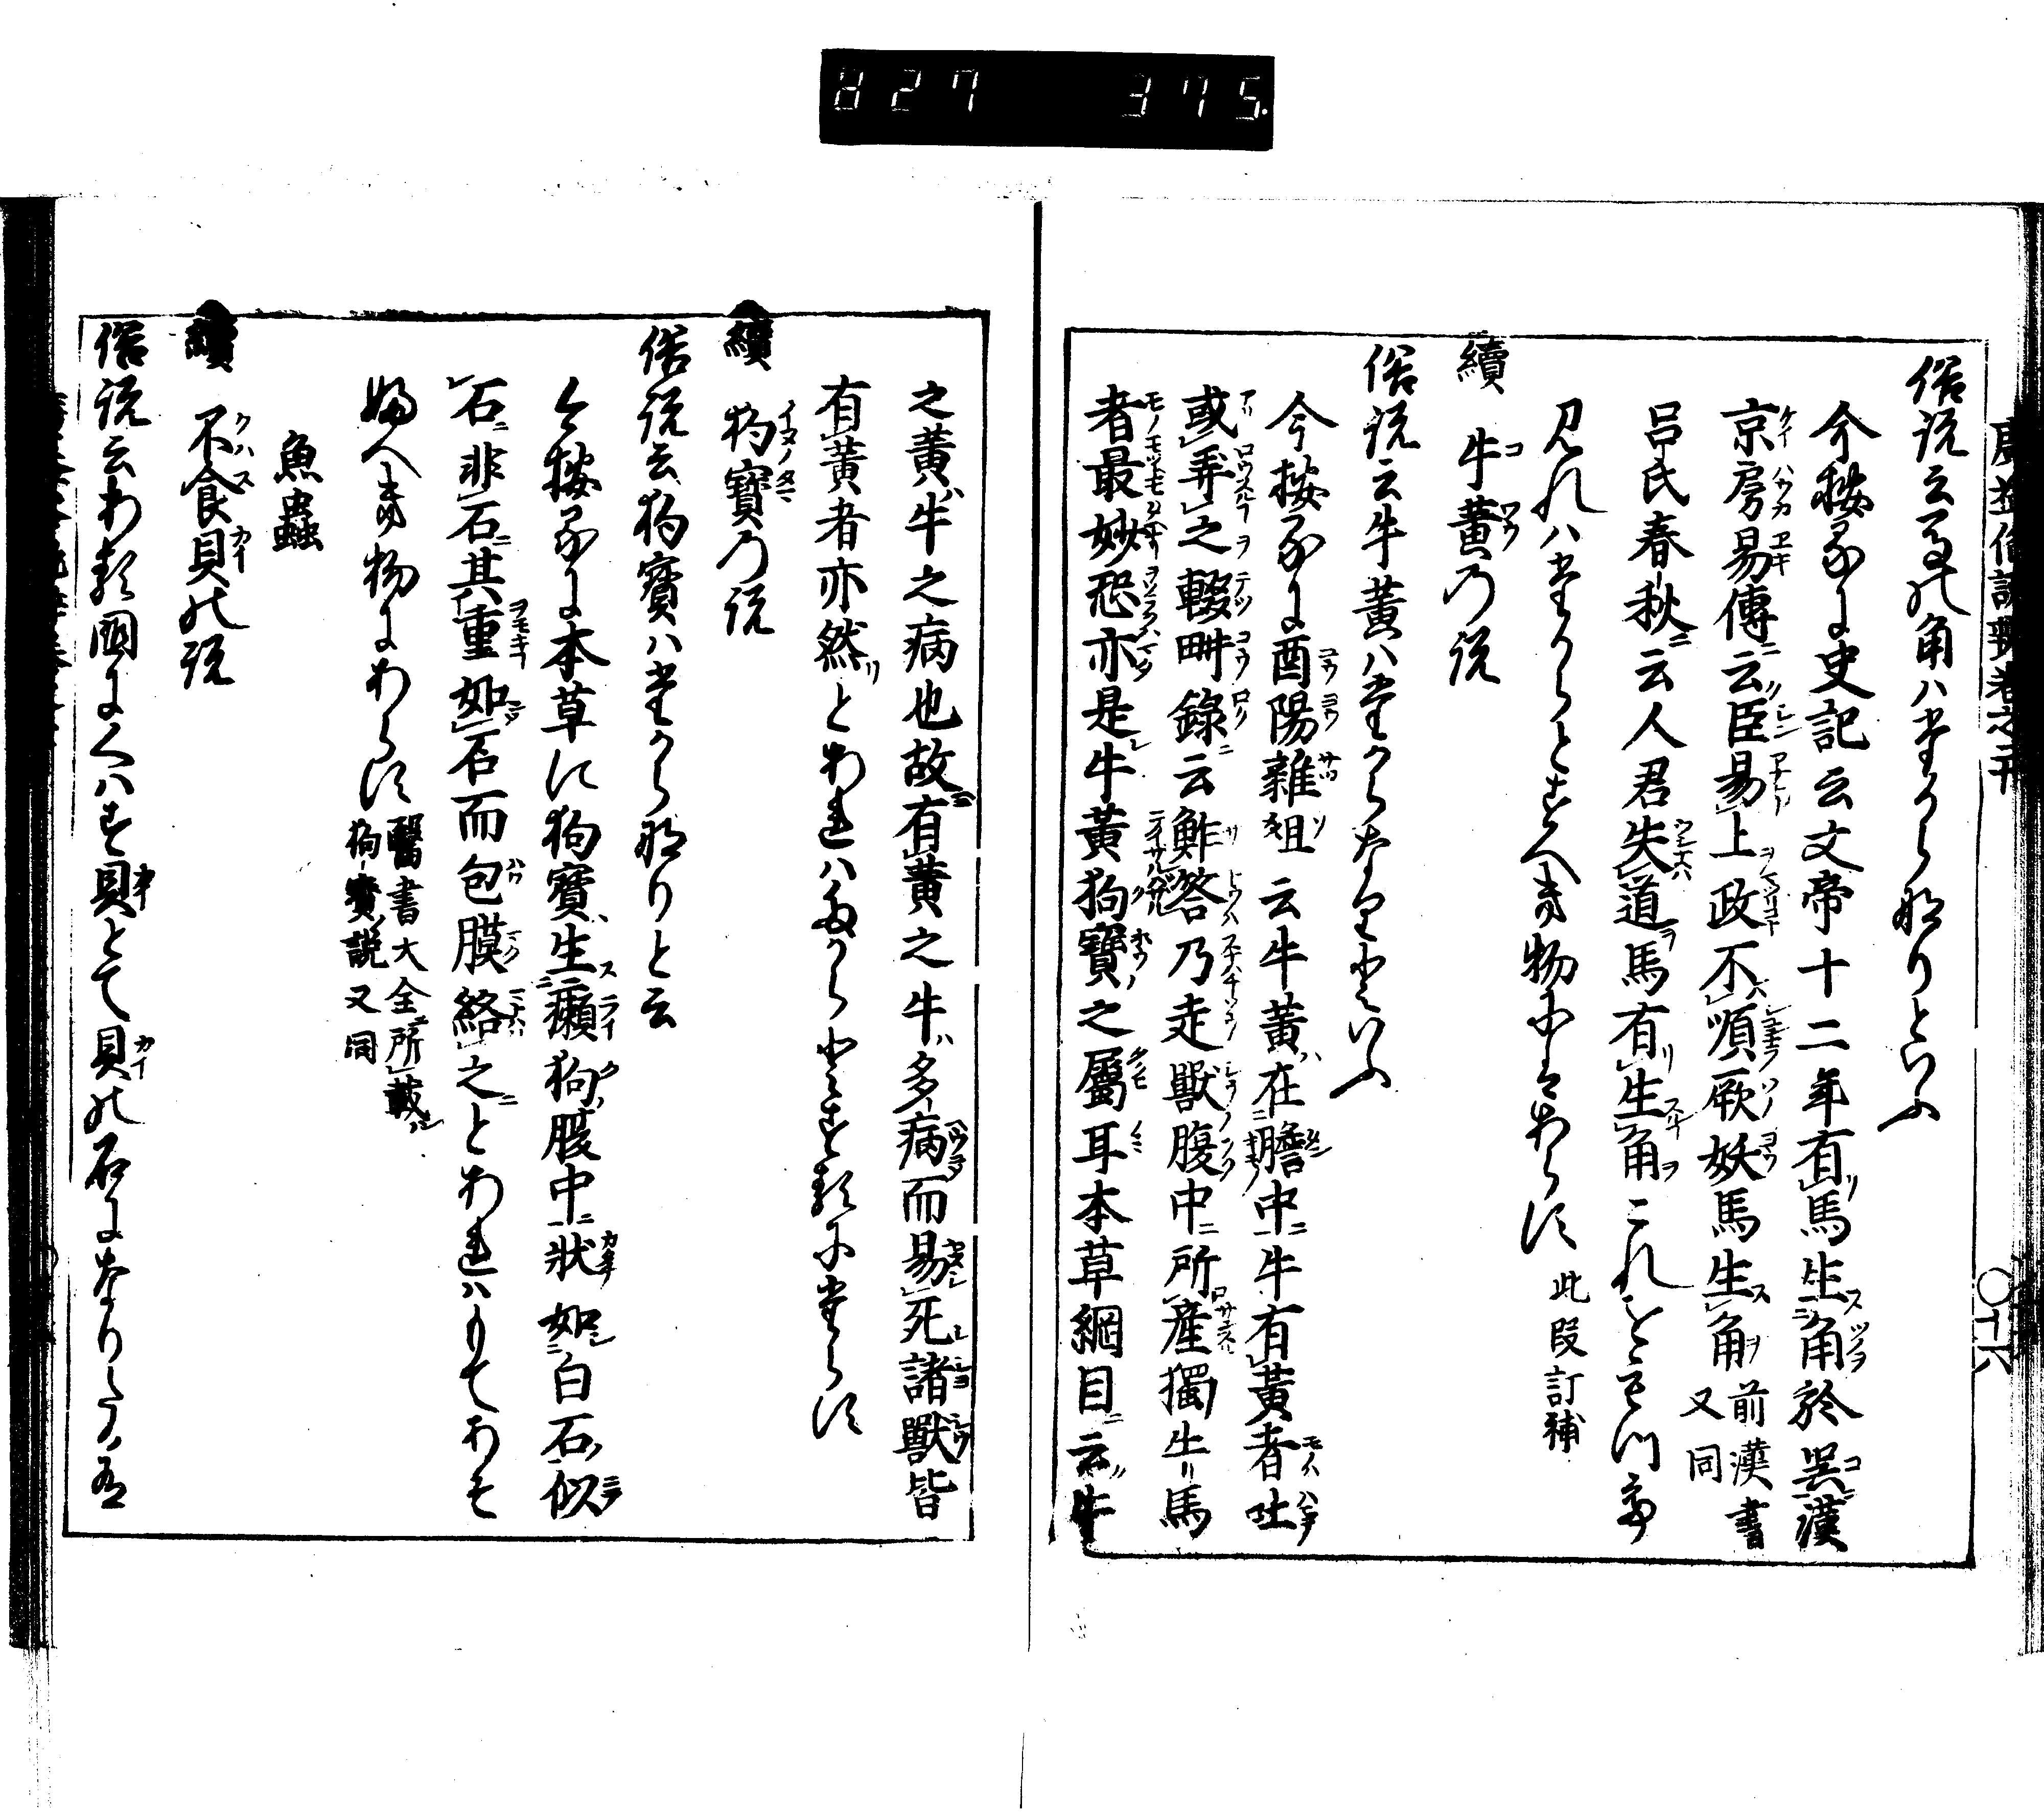 827 375
俗説云馬の角ハたからなりといふ
今按るに史記云文帝十二年有馬生角於呉漢
京房易傳云臣易上政不順厥妖馬生角前漢書又同
呂氏春秋云人君失道馬有生角これをもつて
見れハたからとすへき物にあらす此段訂補
續 牛黄の説
俗説云牛黄ハたからなりといふ
今按るに酉陽雜俎云牛黄在膽中牛有黄者吐
或弄之輟畊錄云鮓荅乃走獸腹中所產獨牛馬
者最妙恐亦是牛黄狗寶之屬耳本草綱目云牛
之黄牛之病也故有黄之牛多病而易死諸獸皆
有黄者亦然とあれハたからとする類にあらす
續 狗寶の説
俗説云狗寶ハたからなりと云
今按るに本草に狗寶生癩狗腹中狀如白石似
石非石其重如石而包膜絡之とあれハもてあそ
ふへき物にあらす醫書大全所載狗寶説又同
魚蟲
續 不食貝の説
俗説云ある国にくハす貝とて貝の石になりたる有